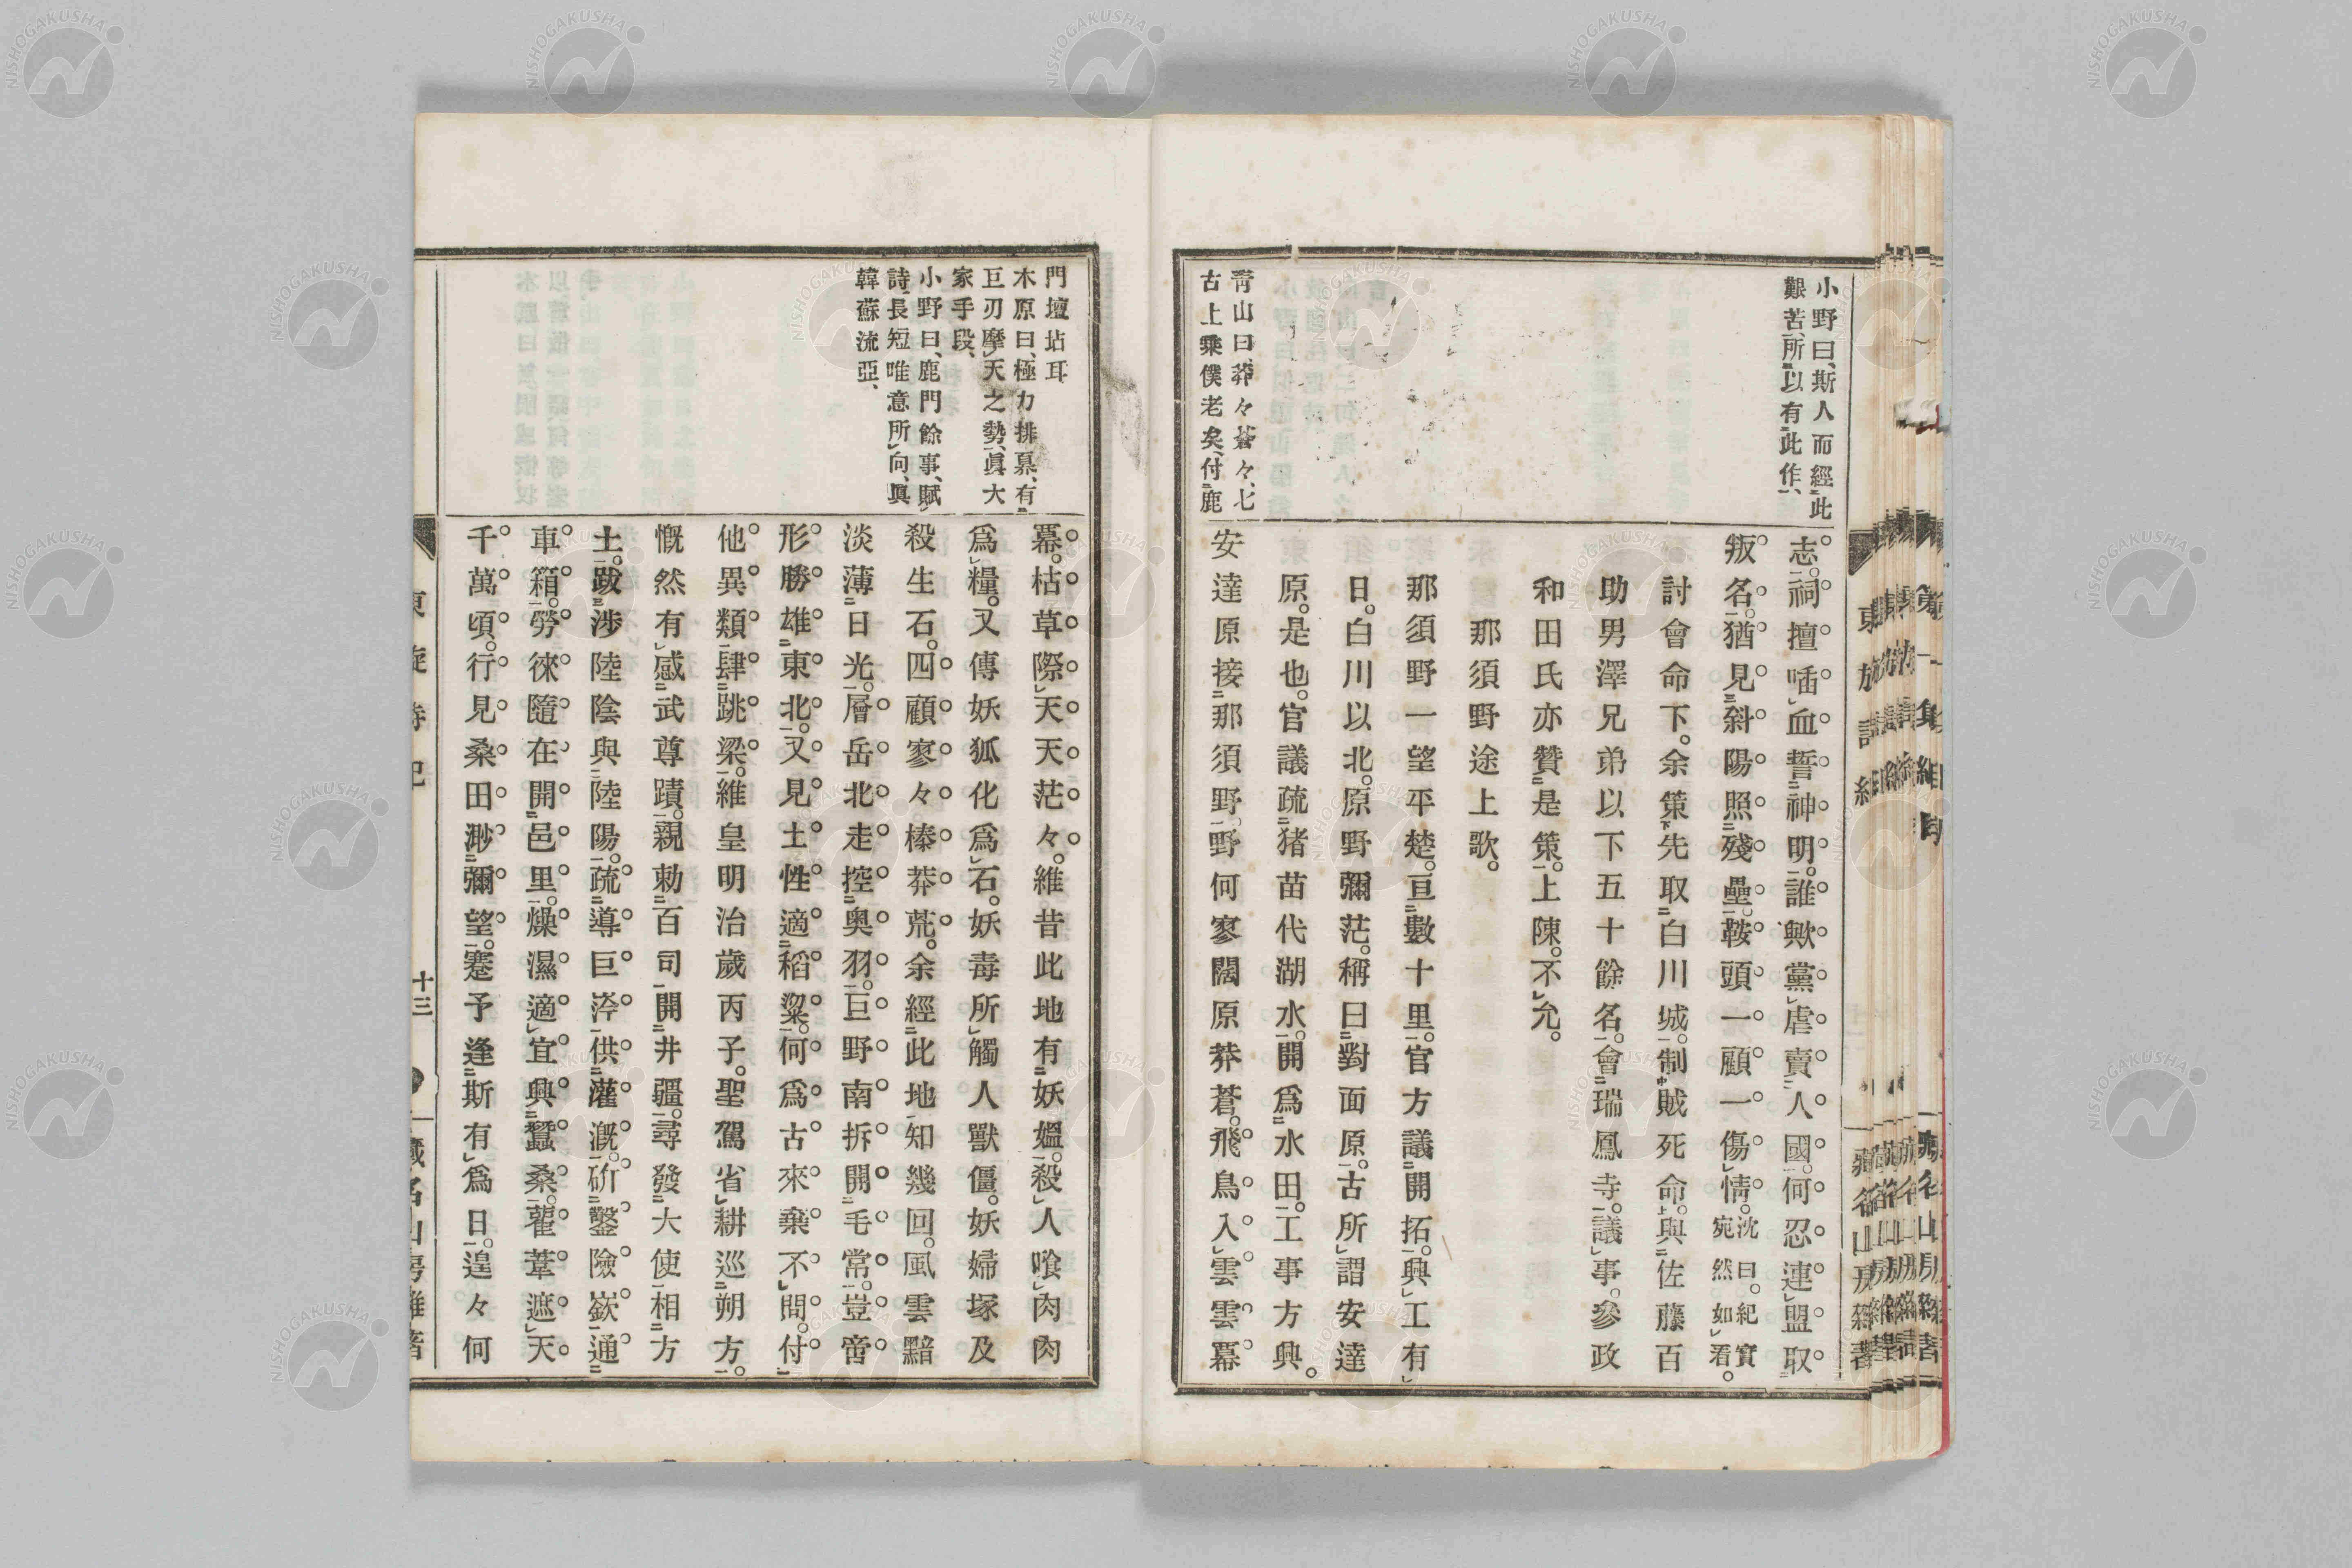 小野曰、斯人而經此
艱苦、所以有此作、
志。祠擅啑血誓神明。誰歟黨虐賣人國。何忍連盟取
叛名。猶見斜陽照殘壘。鞍頭一顧一傷情。沈曰。紀實宛然如看。
討會命下。余策先取白川城。制賊死命。與佐藤百
助男澤兄弟以下五十餘名。會瑞鳳寺。議事。參政
和田氏亦贊是策。上陳。不允。
那須野途上歌。
那須野一望平楚。亘數十里。官方議開拓。興工有
日。白川以北。原野彌茫。稱曰對面原。古所謂安達
原。是也。官議疏猪苗代湖水。開爲水田。工事方興。
安達原接那須野。野何寥闊原莽蒼。飛鳥入雲雲幕
青山曰、莽々蒼々、七
古上乘僕老矣、付鹿
門壇坫耳
木原曰、極力排奡、有
巨刃摩天之勢、眞大
家手段、
小野曰、鹿門餘事、賦
詩、長短唯意所向、眞
韓蘇流亞、
幕。枯草際天天茫々。維昔此地有妖媼。殺人喰肉肉
爲糧。又傳妖狐化爲石。妖毒所觸人獸僵。妖婦塚及
殺生石。四顧寥々榛莽荒。余經此地知幾回。風雲黯
淡薄日光。層岳北走控奥羽。巨野南拆開毛常。豈啻
形勝雄東北。又見土性適稻粱。何爲古來棄不問。付
他異類肆跳梁。維皇明治歲丙子。聖駕省耕巡朔方。
慨然有感武尊蹟。親勅百司開井疆。尋發大使相方
土。跋涉陸陰與陸陽。疏導巨洿供灌漑。斫鑿險嶔通
車箱。勞徠隨在開邑里。燥濕適宜興蠶桑。雚葦遮天
千萬頃。行見桑田渺彌望。蹇予逢斯有爲日。遑々何
十三